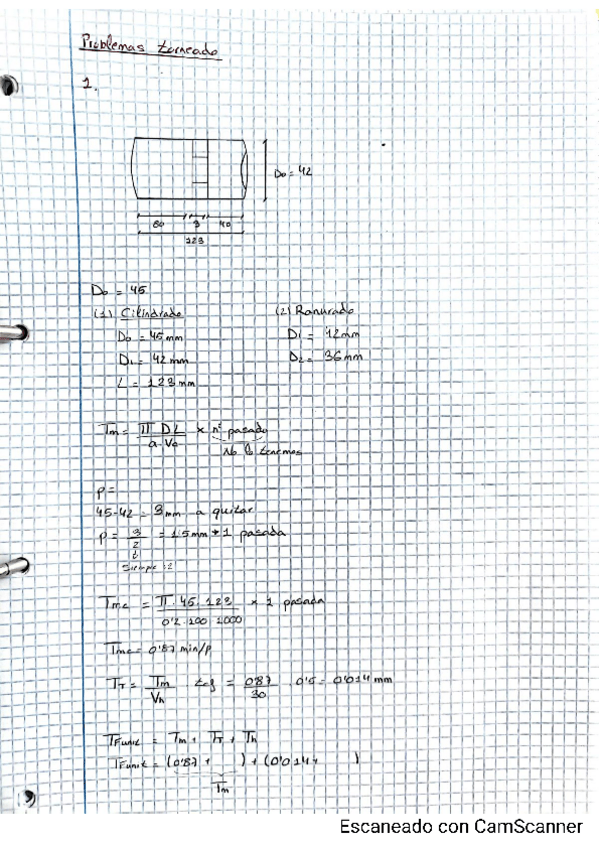 Problemas torneado
1.
Do = 42
80 3 40
123
Do = 45
(1) Cilindrado
(2) Ranurado
Do = 45mm
D1 = 42mm
D1 = 42mm
D2 = 36mm
L = 123mm
Tm = Π D L / a · Vc × nº pasada
no lo tenemos
P =
45-42 = 3mm a quitar
P = 3/2 = 1.5mm → 1 pasada
siempre :2
Tmc = Π · 45 · 123 / 0'2 · 100 · 1000 × 1 pasada
Tmc = 0'87 min/p
TT = Tm / Vh · tcf = 0'87 / 30 · 0'5 = 0'014 mm
TFunit = Tm + TT + Th
TFunit = (0'87 + ) + (0'014 + )
Tm
Escaneado con CamScanner